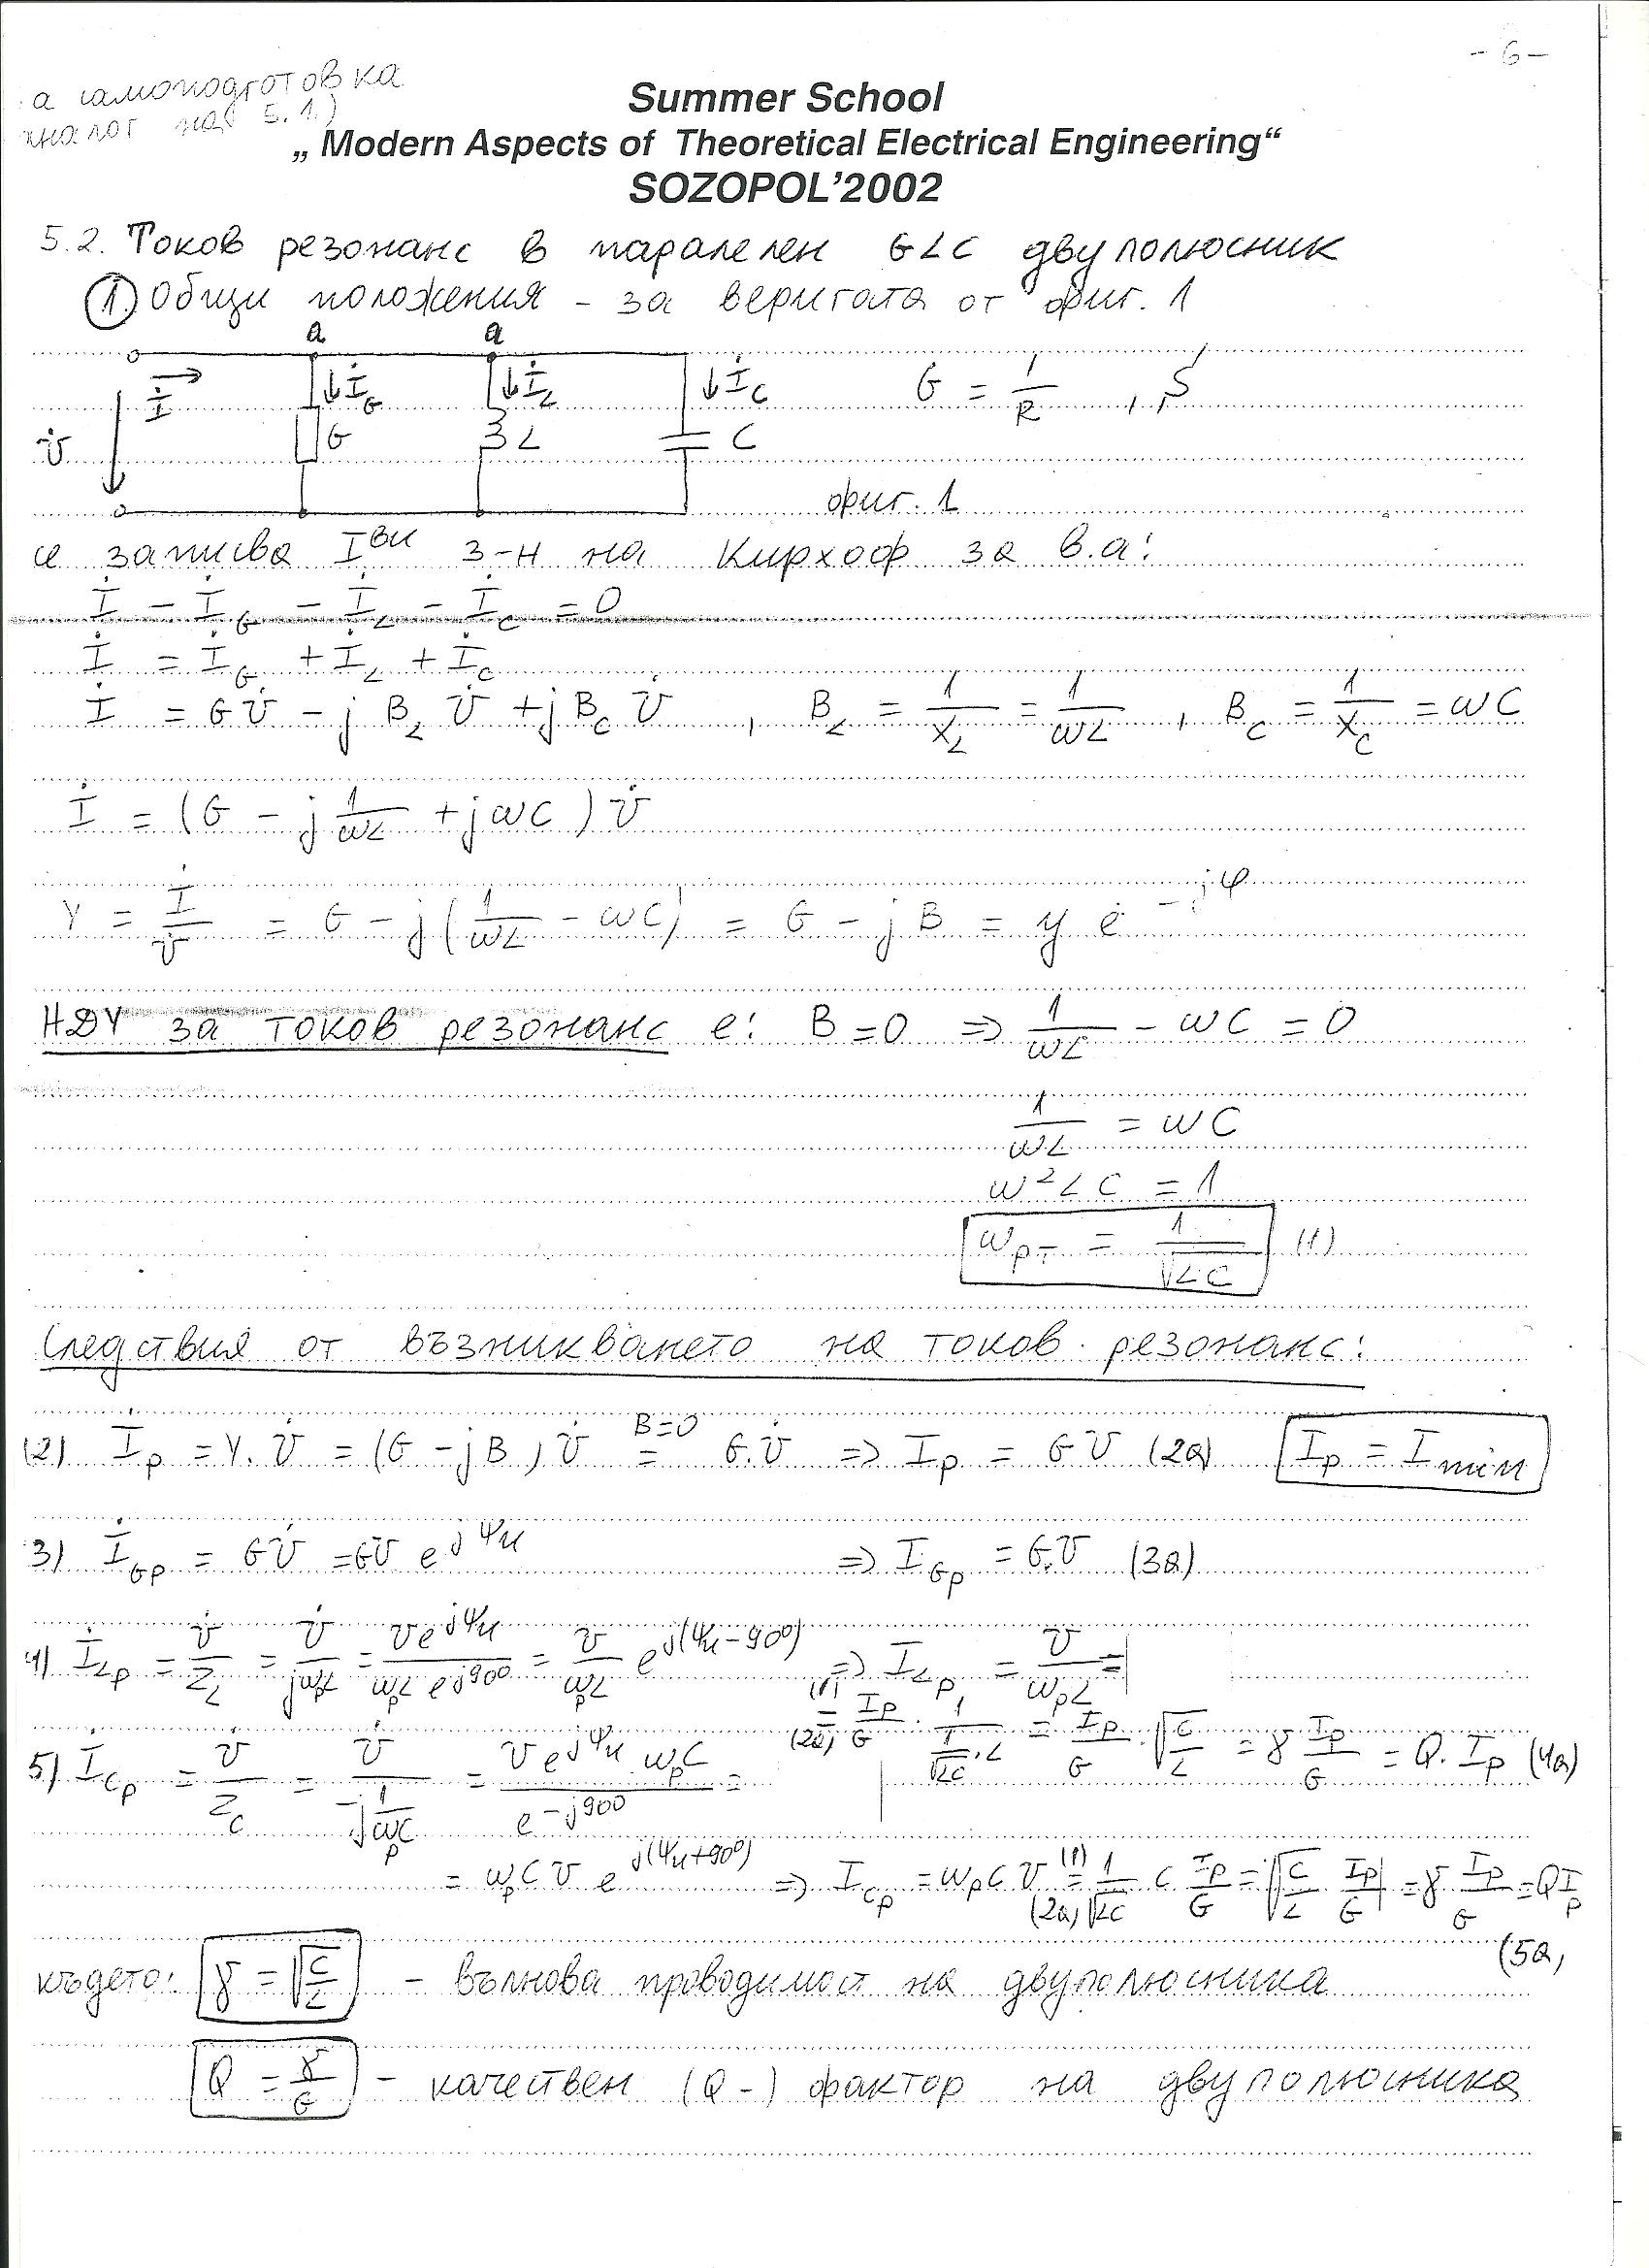 - 6 -
а самоподготовка
налог на 5.1.)
Summer School
„ Modern Aspects of Theoretical Electrical Engineering“
SOZOPOL’2002
5.2. Токов резонанс в паралелен GLC двуполюсник
1. Общи положения - за веригата от фиг. 1
a a
İ İ_G İ_L İ_C G = 1/R , S
U̇ G L C
фиг. 1
се записва I^ви з-н на Кирхоф за в.а:
İ - İ_G - İ_L - İ_C = 0
İ = İ_G + İ_L + İ_C
İ = GU̇ - j B_L U̇ + j B_C U̇ , B_L = 1/X_L = 1/ωL , B_C = 1/X_C = ωC
İ = (G - j 1/ωL + jωC) U̇
Y = İ/U̇ = G - j(1/ωL - ωC) = G - jB = y e^-jφ
НДУ за токов резонанс е: B = 0 => 1/ωL - ωC = 0
1/ωL = ωC
ω²LC = 1
ω_рт = 1/√LC (1)
Следствия от възникването на токов резонанс:
(2) İ_p = Y.U̇ = (G - jB) U̇ =^(B=0) G.U̇ => I_p = GU (2а) I_p = I_min
3) İ_Gp = GU̇ = GU e^jψu => I_Gp = G.U (3а)
4) İ_Lp = U̇/Z_L = U̇/jω_pL = U e^jψu / ω_pL e^j90° = U/ω_pL e^j(ψu-90°) => I_Lp = U/ω_pL =
=^(1)_(2а) I_p/G . 1/(1/√LC . L) = I_p/G . √C/L = γ I_p/G = Q. I_p (4а)
5) İ_Cp = U̇/Z_C = U̇/(-j 1/ω_pC) = U e^jψu ω_pC / e^-j90° =
= ω_pCU e^j(ψu+90°) => I_Cp = ω_pCU =^(1)_(2а) 1/√LC C I_p/G = √C/L I_p/G = γ I_p/G = QI_p
(5а)
където: γ = √C/L - вълнова проводимост на двуполюсника
Q = γ/G - качествен (Q-) фактор на двуполюсника